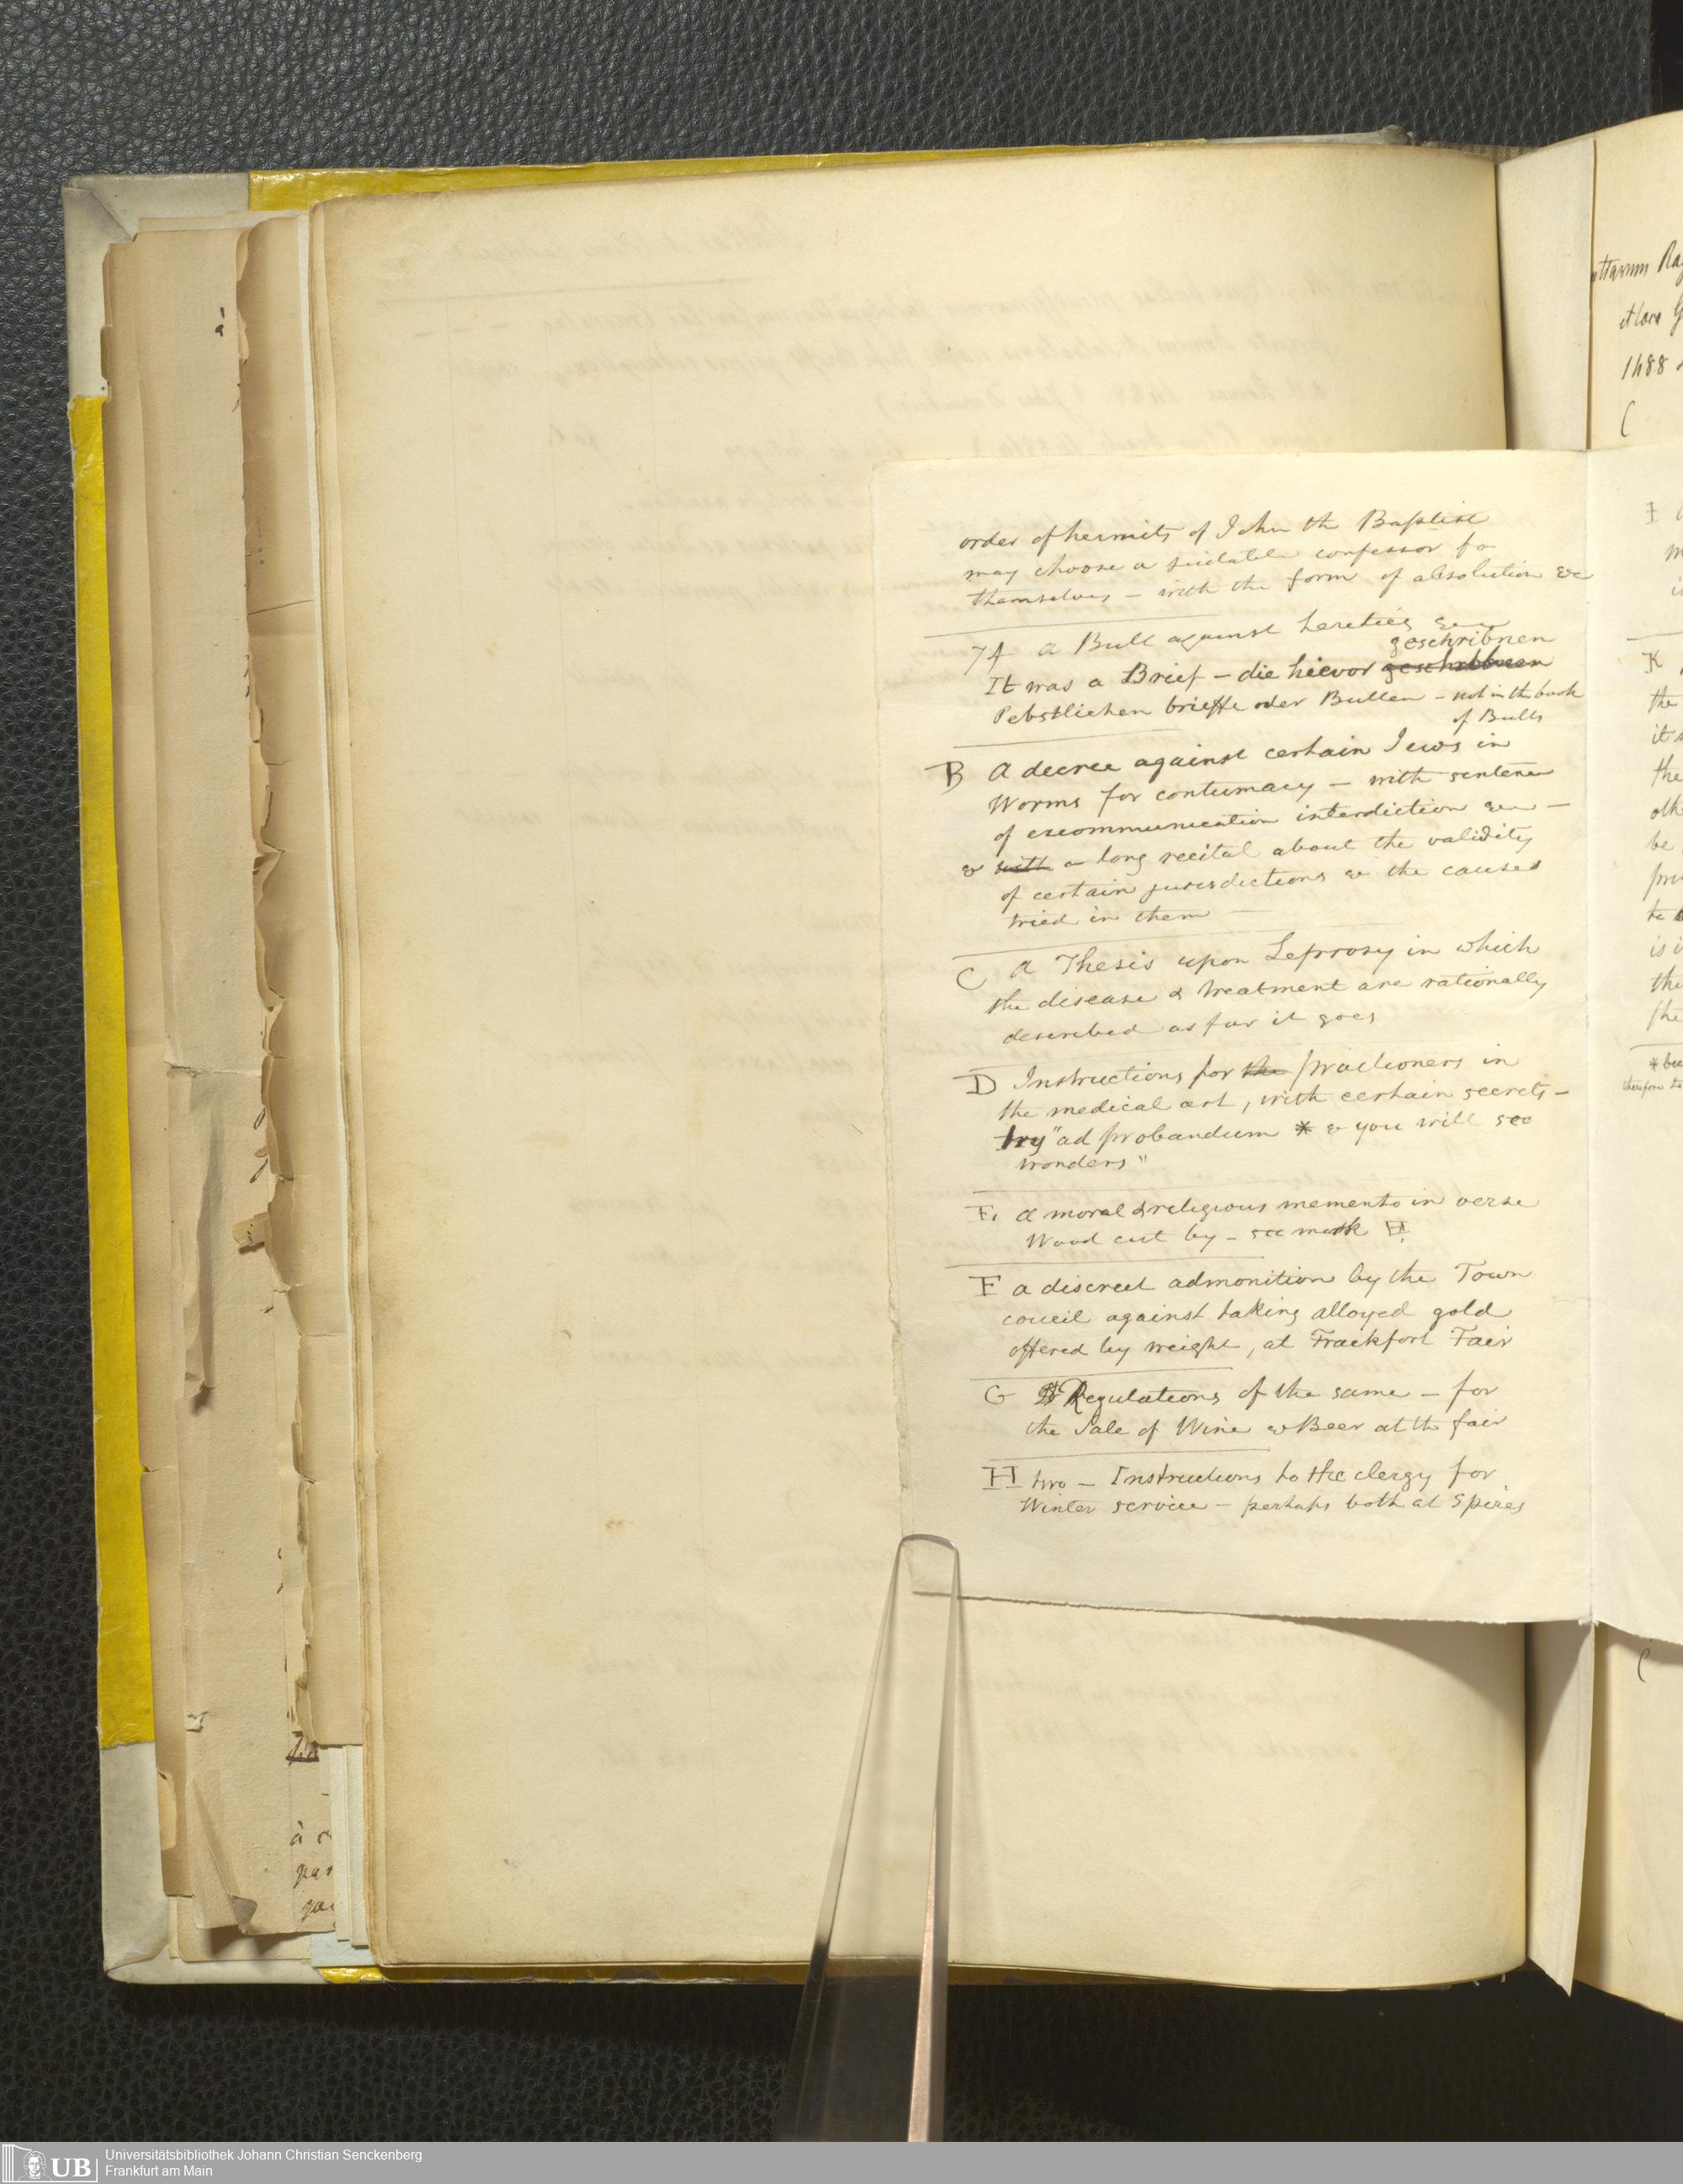 order of hermits of John the Baptist
may choose a suidable confessor fo
themselves – with the form of absolution &c
74 a Bull against heretics &c
geschribnen
It was a Brief – die hievor geschribbnen
Pebstlichen brieffe oder Bullen – not in the book
of Bulls
B A decree against certain Jews in
Worms for contumacy – with sentence
of excommunication interdiction &c –
& with a long recital about the validity
of certain jurisdictions & the causes
tried in them –
C A Thesis upon Leprosy in which
the disease & treatment are rationally
described as far it goes
D Instructions for the practioners in
the medical art, with certain secrets –
try "ad probandum * & you will see
wonders"
E. a moral & religious memento in verse
Wood cut by – see mark H.
F a discreet admonition by the Town
coucil against taking alloyed gold
offered by weight, at Frackfort Fair
G Regulations of the same – for
the Sale of Wine & Beer at th fair
H two – Instructions to the clergy for
Winter service – perhaps both at Spires
ttarum
1488
(
I
K
the
the
be
is i
the
* bec
therefore
(
à
à c
par
UB
Universitätsbibliothek Johann Christian Senckenberg
Frankfurt am Main